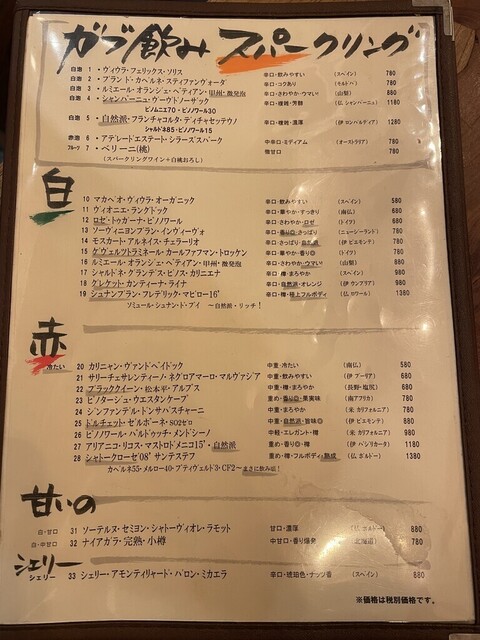 ガブ飲みスパークリング
白泡 1・ヴィウラ・フェリックス・ソリス 辛口・飲みやすい (スペイン) 780
白泡 2・ブランド・カヘルネ・スティファンヴォーダ 辛口・コクあり (モルドバ) 780
白泡 3・ルミエール・オランジェ・ペティアン・甲州・微発泡 辛口・さわやか・ウマい! (山梨) 880
白泡 4・シャンパーニュ・ヴーヴドノーザック 辛口・複雑・芳醇 (仏 シャンパーニュ) 1180
ピノムニエ70・ピノノワール30
白泡 5・自然派・フランチャコルタ・ディチャセッテウノ 辛口・複雑・濃厚 (伊 ロンバルディア) 1280
シャルドネ85・ピノノワール15
赤泡 6・アデレードエステート・シラーズスパーク 中辛口・ミディアム (オーストラリア) 780
フルーツ 7・ベリーニ(桃) 微甘口 780
(スパークリングワイン+白桃おろし)
白
10 マカベオ・ヴィウラ・オーガニック 辛口・飲みやすい (スペイン) 580
11 ヴィオニエ・ラングドック 辛口・華やか・すっきり (南仏) 680
12 ロゼ・トゥガーナ・ピノノワール 辛口・さわやか・ロゼ (ドイツ) 680
13 ソーヴィニヨンブラン・インヴィーヴォ 辛口・香り◎・さっぱり (ニュージーランド) 780
14 モスカート・アルネイス・チェラーリオ 辛口・さっぱり・自然派 (伊 ピエモンテ) 780
15 ゲヴェルツトラミネール・カールファフマン・トロッケン 辛口・華やか・香り◎ (ドイツ) 780
16 ルミエール・オランジェ・ペティアン・甲州・微発泡 辛口・さわやか・ウマい! (山梨) 880
17 シャルドネ・グランデス・ピノス・カリニェナ 辛口・樽・まろやか (スペイン) 980
18 グレケット・カンティーナ・ライナ 辛口・自然派・オレンジ (伊 ウンブリア) 980
19 シュナンブラン・フレデリック・マビロー16゛ 辛口・樽・極上フルボディ (仏 ロワール) 1380
ソミュール・シュナンド・ブイ ~自然派・リッチ!
赤
冷たい 20 カリニャン・ヴァンドペイドック 中重・冷たい (南仏) 580
21 サリーチェサレンティーノ・ネグロアマーロ・マルヴァジア 中重・飲みやすい (伊 プーリア) 680
22 ブラッククイーン・松本平・アルプス 中重・樽・まろやか (長野・塩尻) 680
23 ピノタージュ・ウエスタンケープ 重め・香り◎・果実味 (南アフリカ) 780
24 ジンファンデル・ドンサバスチャーニ 中重・まろやか (米 カリフォルニア) 780
25 ドルチェット・ゼルボーネ・SO2ゼロ 中重・自然派・旨味◎ (伊 ピエモンテ) 880
26 ピノノワール・パルドゥッチ・メンドシーノ 中軽・エレガント・樽 (米 カリフォルニア) 980
27 アリアニコ・リコス・マストロドメニコ15゛・自然派 重め・香り◎・樽 (伊 バシリカータ) 1180
28 シャトークローゼ'08゛サンテステフ 重め・樽・フルボディ・熟成 (仏 ボルドー) 1380
カベルネ55・メルロー40・プティヴェルド3・CF2~まさに飲み頃!
甘いの
白・甘口 31 ソーテルヌ・セミヨン・シャトーヴィオレ・ラモット 甘口・濃厚 (仏 ボルドー) 880
白・中甘口 32 ナイアガラ・完熟・小樽 中甘口・香り爆発 (北海道) 780
シェリー
シェリー 33 シェリー・アモンティリャード・バロン・ミカエラ 辛口・琥珀色・ナッツ香 (スペイン) 680
※価格は税別価格です。